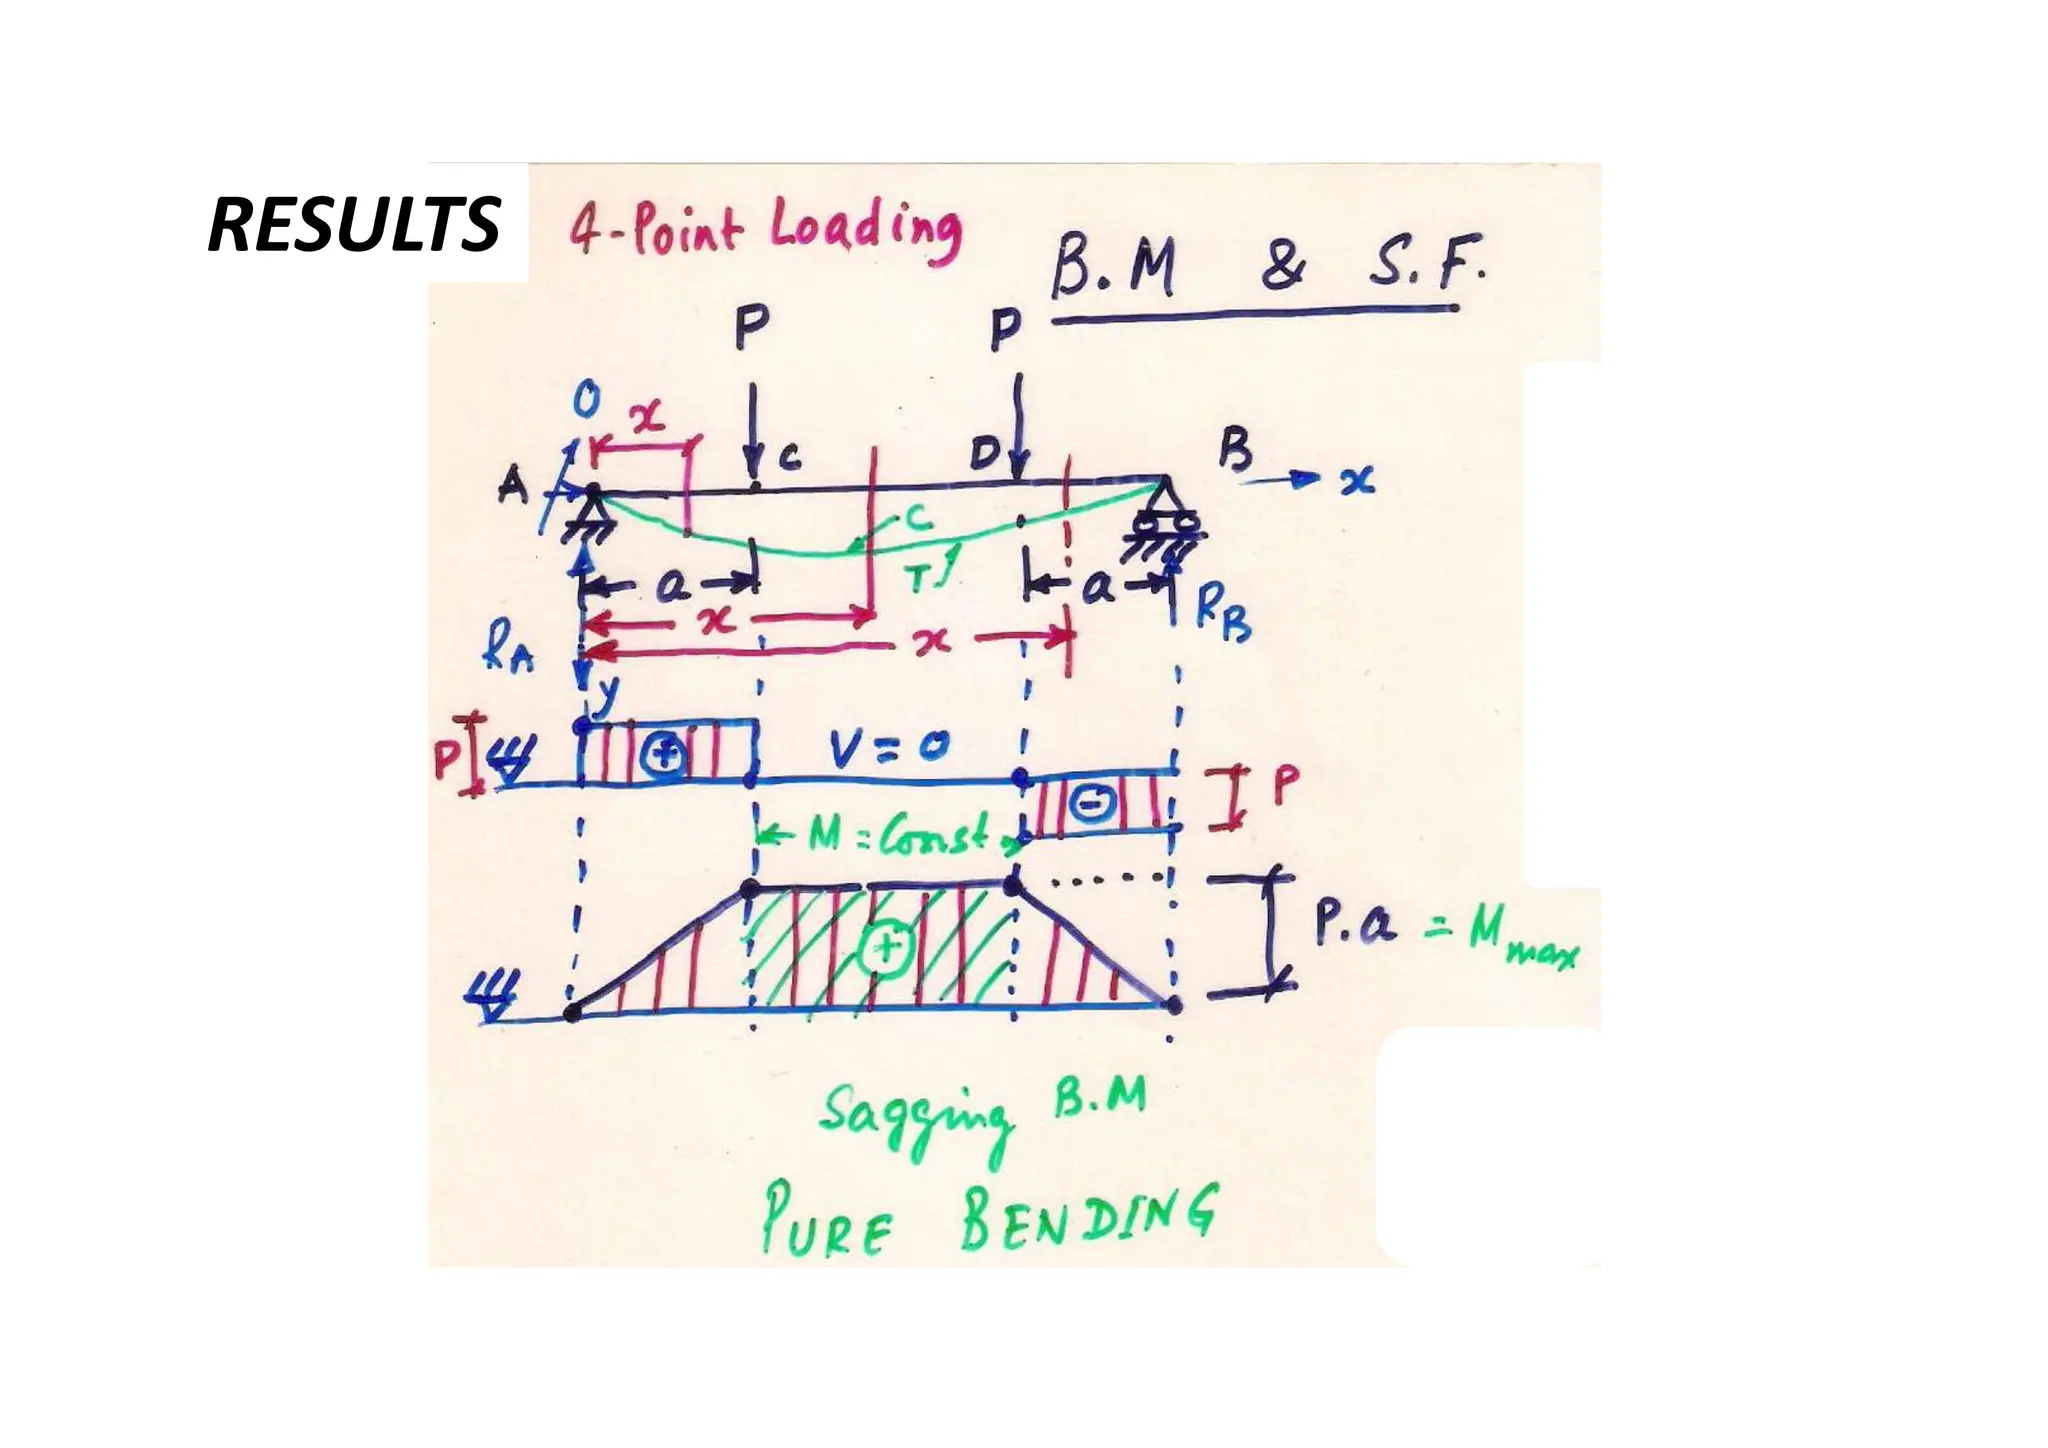 RESULTS
4-Point Loading
B.M & S.F.
P P
O
x
A C D B x
C
T
a a
x
x
RA RB
y
P + V = 0
- P
M = Const
+ P.a = Mmax
Sagging B.M
PURE BENDING